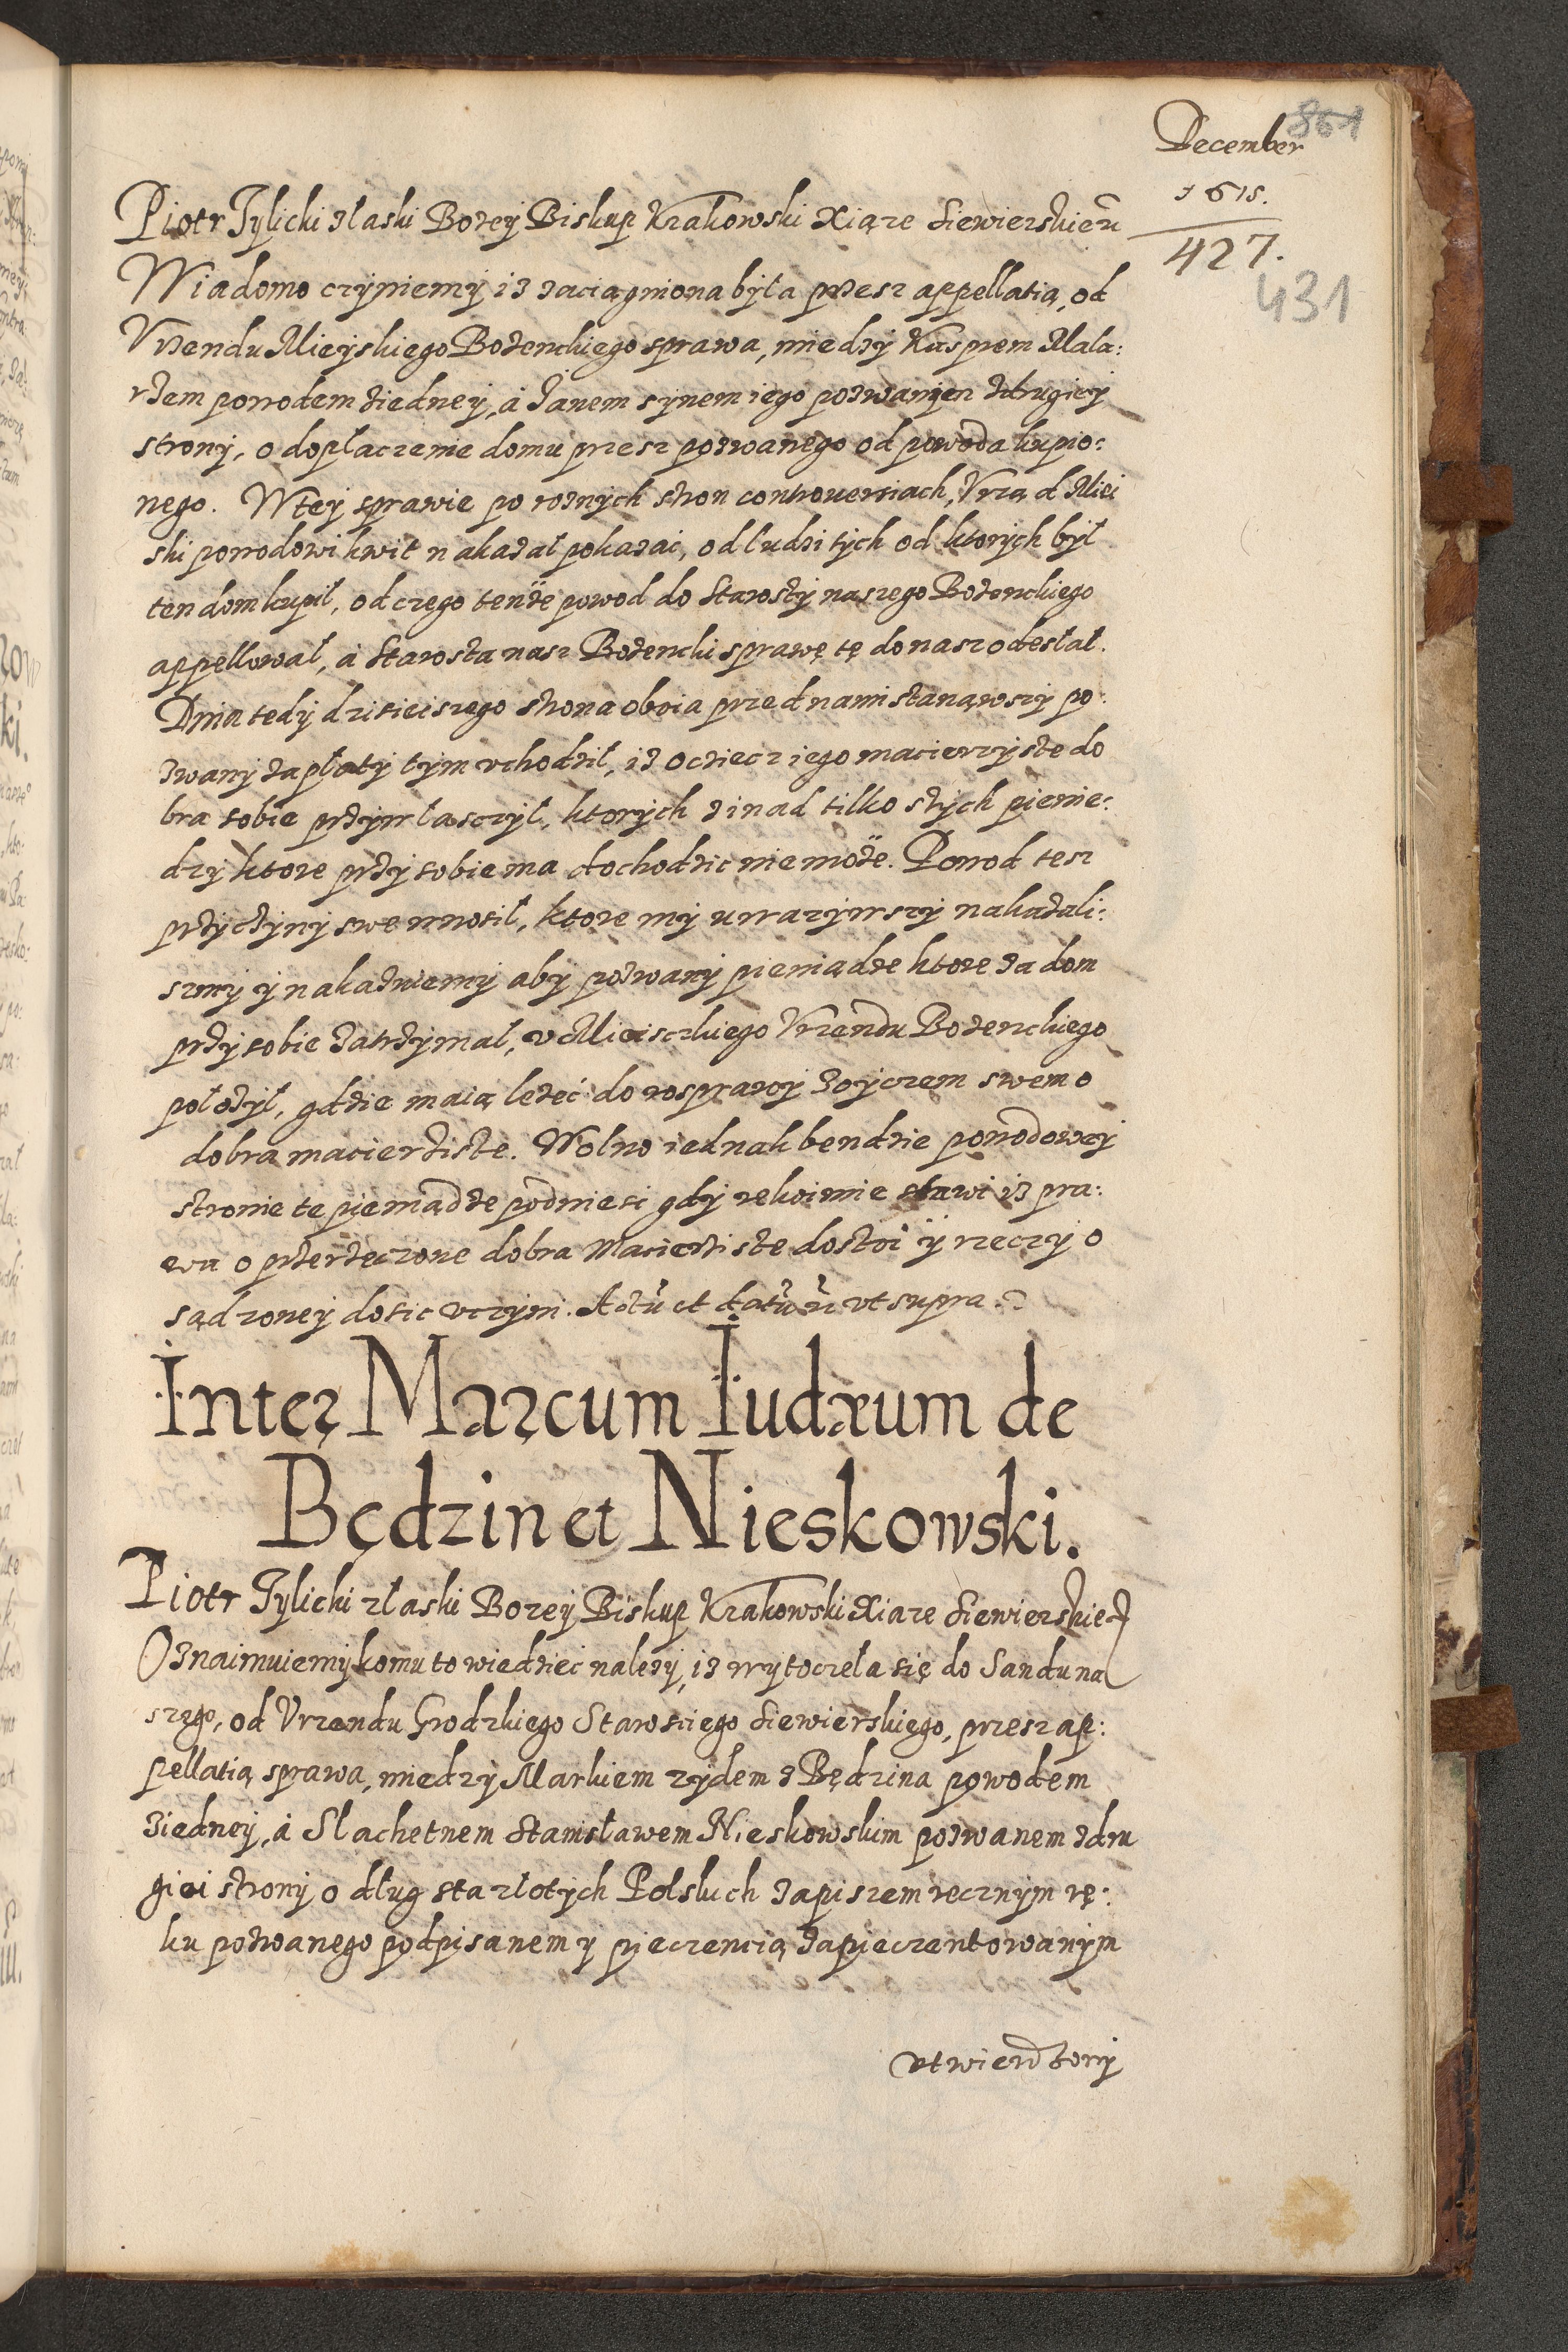 December
861
1615.
427.
431
Piotr Tylicki złaski Bozey Biskup Krakowski Xiąze Siewierskie
Wiadomo czyniemy iz zaciągniona była przesz appellatią od
Vrzendu Mieyskiego Bozenckiego sprawa, miedzy Kasprem Mala:
rzem powodem ziedney, á Janem synem iego pozwanym zdrugiey
strony, o dopłaczenie domu przesz pozwanego od powoda kupio:
nego. Wtey sprawie po roznych stron controuersiach, Vrząd Miei
ski powodowi kwit nakazał pokazać, od ludzi tych od ktorych był
ten dom kupił, od czego tenże powod do Starosty naszego Bozenckiego
appellował, á Starosta nasz Bozencki sprawę tę do nasz odesłał.
Dnia tedy dzisieiszego strona oboia przed nami stanąwszy po:
zwany zapłaty tym vchodził, iz ociecz iego macierzyste do
bra sobie przywłasczył, ktorych zinad tilko stych pienie:
dzy ktore przy sobie ma dochodzic nie może. Powod tesz
przyczyny swe wnosił, ktore my uwazywszy nakazali:
szmy y nakazuiemy aby pozwany pieniądze ktore za dom
przy sobie zatrzymal, v Mieisczkiego Vrzendu Bozenckiego
położył, gdzie maią lezeć do rosprawy zoyczem swem o
dobra macierziste. Wolno iednak bendzie powodowey
stronie te pieniądze podniesc gdy rekoimie stawi iz pra:
wu o przerzeczone dobra Macierziste dostoi y rzeczy o
sądzoney dosic vczyni. Actū et datū ut supra.
Inter Marcum Iudæum de
Będzin et Nieskowski.
Piotr Tylicki złaski Bozey Biskup Krakowski Xiaze Siewierskie
Oznaimuiemy komu to wiedziec nalezy, iz wytoczeła się do Sandu na
szego, od Vrzendu Grodzkiego Starosciego Siewierskiego, przesz ap:
pellatią sprawa, miedzy Markiem zydem z Będzina powodem
ziedney, á Slachetnem Stanisławem Nieskowskim pozwanem zdru
giei strony o dług sta złotych Polskich zapiszem recznym rę:
ku pozwanego podpisanem y pieczencią zapieczentowanym
vtwierdzony